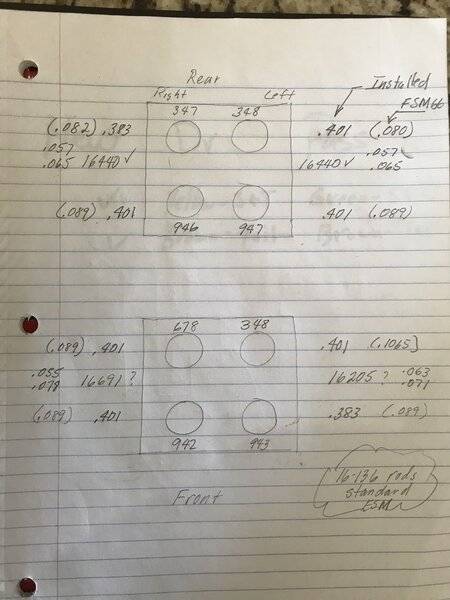 Rear
Right Left
Installed
FSM66
347 348
(.082) .383 .401 (.080)
.057 .057
.065 16440 ✓ 16440 ✓ .065
(.089) .401 .401 (.089)
946 947
678 348
(.089) .401 .401 (.1065)
.055 .063
.078 16691 ? 16205 ? .071
(.089) .401 .383 (.089)
942 943
Front
16-136 rods
standard